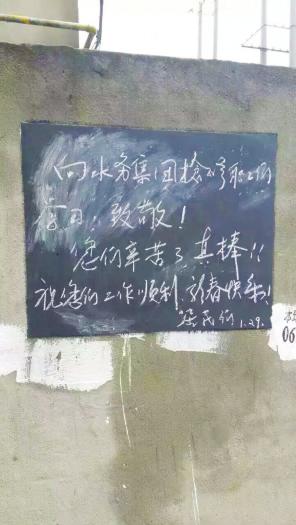 向水务集团抢修职工们
学习,致敬!
您们辛苦了真棒!!
祝您们工作顺利,新春快乐!
居民们 1.29.
06